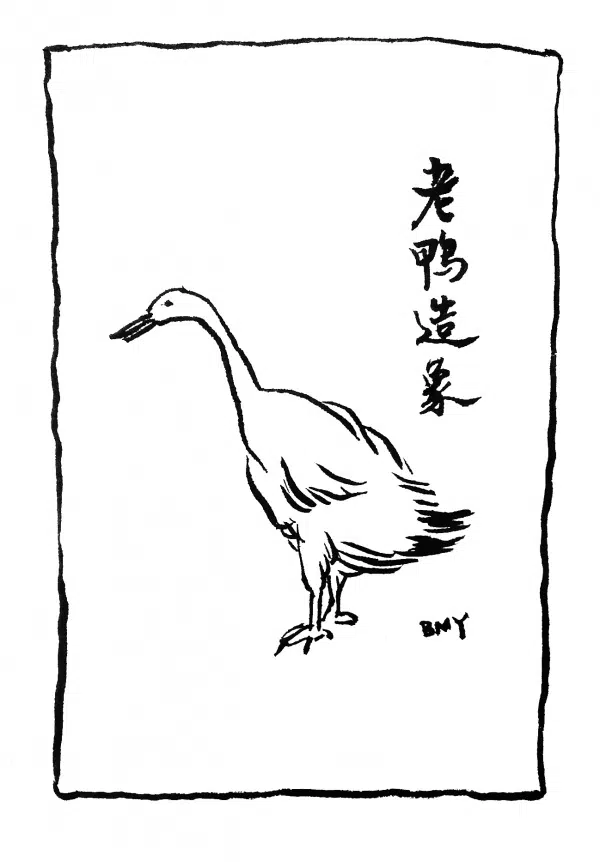 老鸭造象
BMY